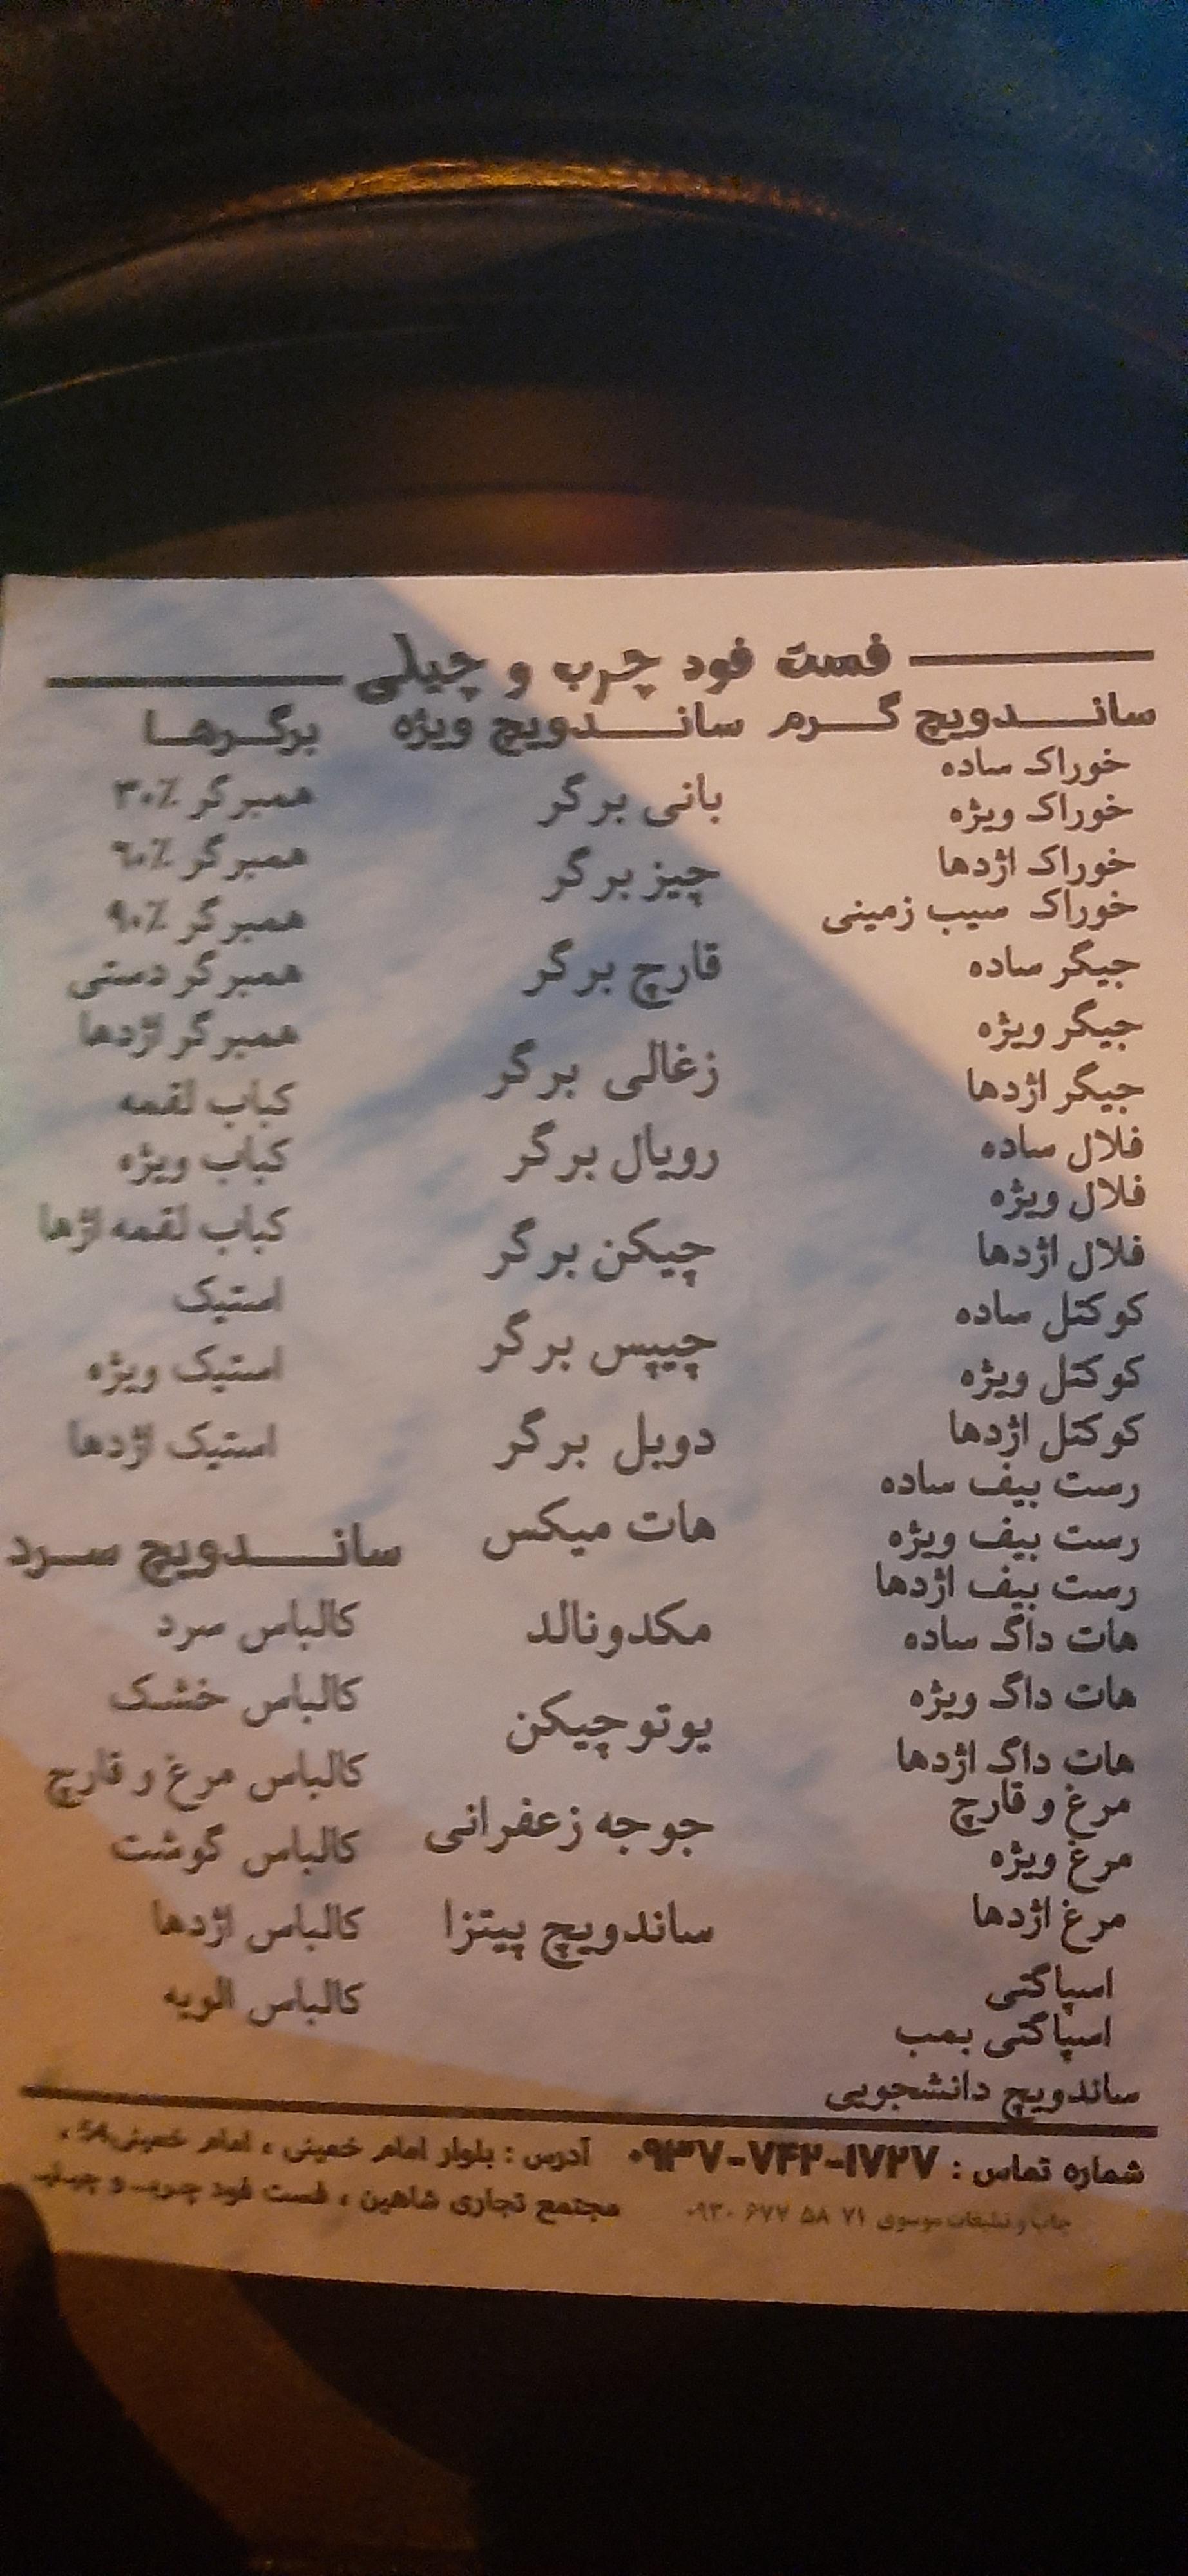 فست فود چرب و چیلی
ساندویچ گرم
خوراک ساده
خوراک ویژه
خوراک اژدها
خوراک سیب زمینی
جیگر ساده
جیگر ویژه
جیگر اژدها
فلال ساده
فلال ویژه
فلال اژدها
کوکتل ساده
کوکتل ویژه
کوکتل اژدها
رست بیف ساده
رست بیف ویژه
رست بیف اژدها
هات داگ ساده
هات داگ ویژه
هات داگ اژدها
مرغ و قارچ
مرغ ویژه
مرغ اژدها
اسپاگتی
اسپاگتی بمب
ساندویچ دانشجویی
ساندویچ ویژه
بانی برگر
چیز برگر
قارچ برگر
زغالی برگر
رویال برگر
چیکن برگر
چیپس برگر
دوبل برگر
هات میکس
مکدونالد
یوتو چیکن
جوجه زعفرانی
ساندویچ پیتزا
برگرها
همبرگر ۳۰٪
همبرگر ۶۰٪
همبرگر ۹۰٪
همبرگر دستی
همبرگر اژدها
کباب لقمه
کباب ویژه
کباب لقمه اژها
استیک
استیک ویژه
استیک اژدها
ساندویچ سرد
کالباس سرد
کالباس خشک
کالباس مرغ و قارچ
کالباس گوشت
کالباس اژدها
کالباس الویه
شماره تماس : ۰۹۳۷-۷۴۲-۱۷۲۷
آدرس : بلوار امام خمینی ، امام خمینی ۶۸ ،
مجتمع تجاری شاهین ، فست فود چرب و چیلی
چاپ و تبلیغات موسوی ۷۱ ۵۸ ۶۷۷ ۰۹۳۰